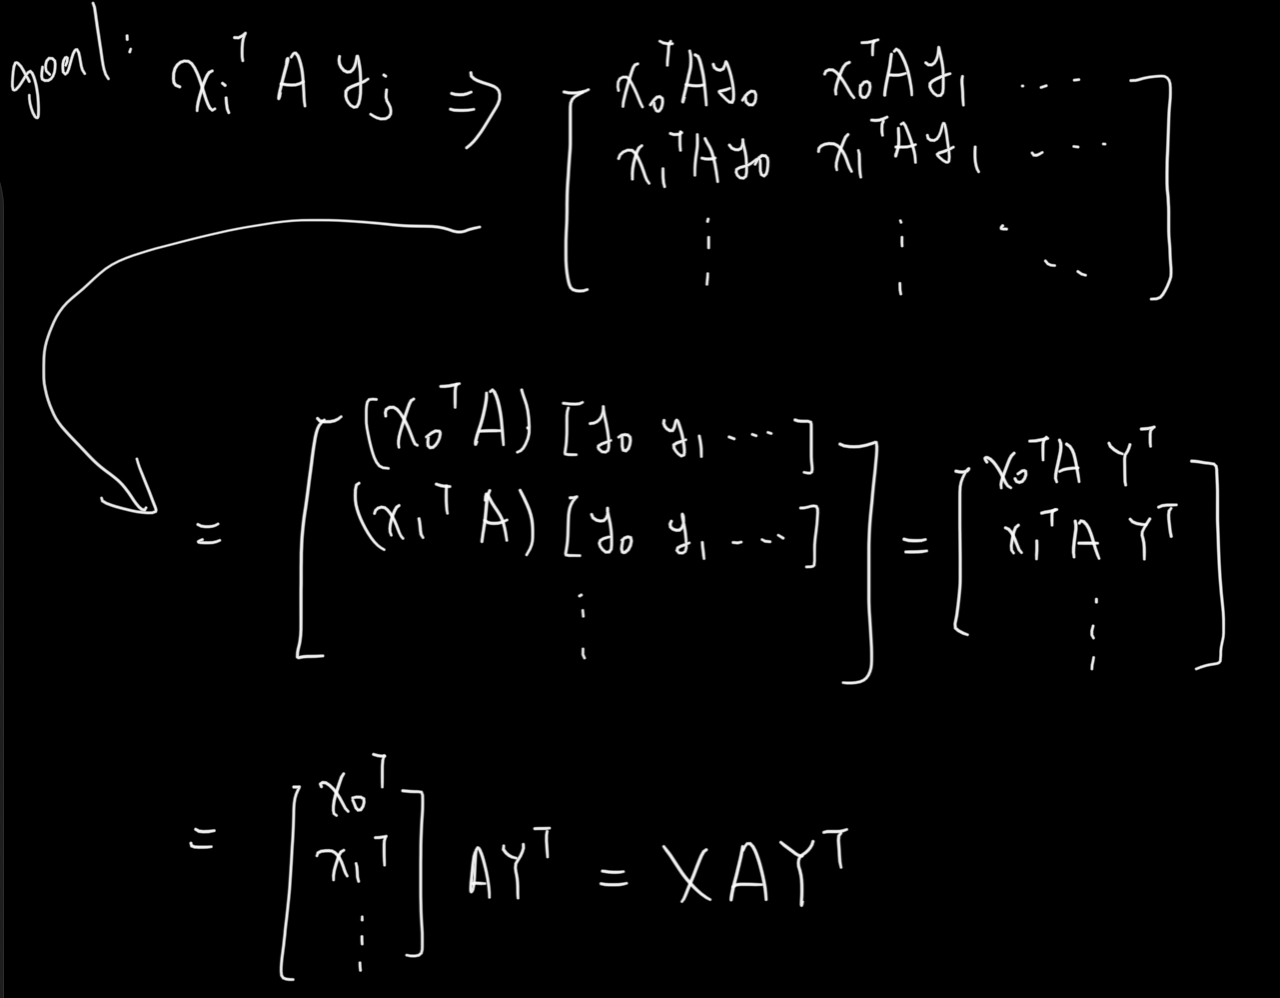 goal: xᵢᵀ A yⱼ ⇒ [ x₀ᵀAy₀ x₀ᵀAy₁ ...
x₁ᵀAy₀ x₁ᵀAy₁ ...
⋮ ⋮ ⋱ ]
= [ (x₀ᵀA) [y₀ y₁ ...]
(x₁ᵀA) [y₀ y₁ ...]
⋮ ]
= [ x₀ᵀA Yᵀ
x₁ᵀA Yᵀ
⋮ ]
= [ x₀ᵀ
x₁ᵀ
⋮ ] AYᵀ = XAYᵀ